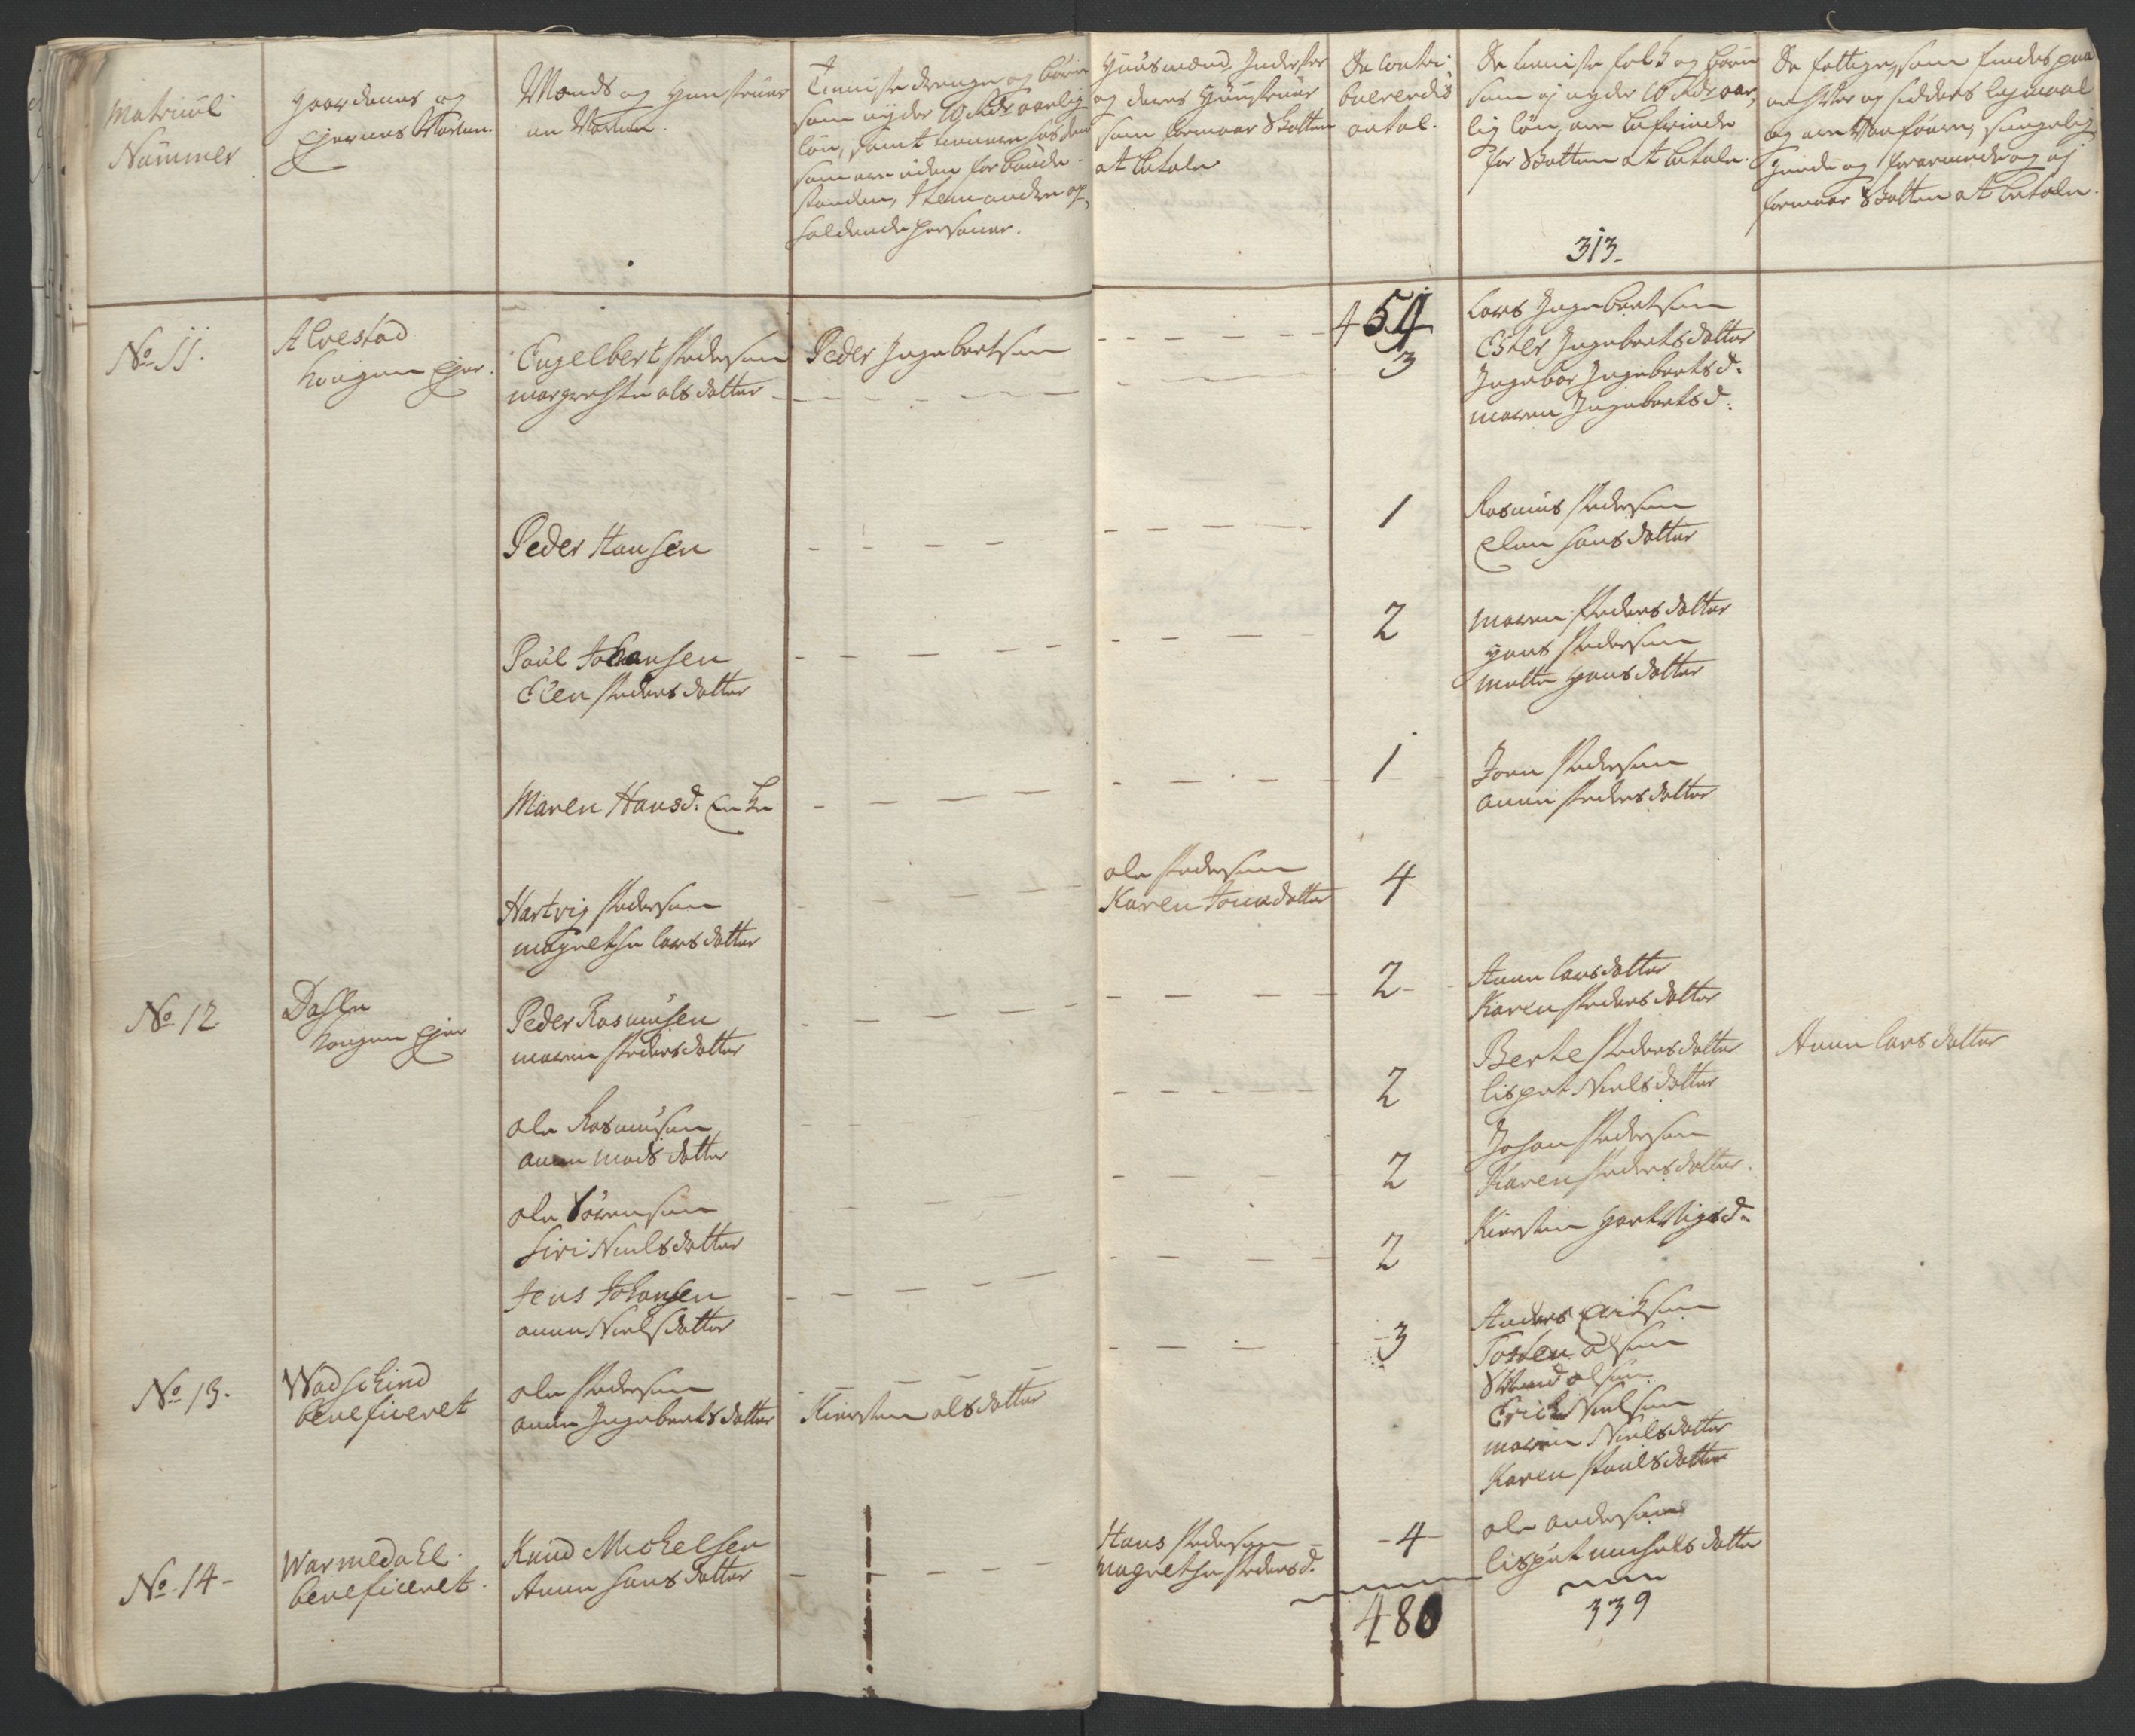 Matricul
Nummer
Gaardenes og
Ejernes Nafne.
Mænds og Hustruers
Nafne.
Tieniste drenge og børn
som nyder 10 Rdr aarlig
løn, samt
som ere uden for bonde-
standen, Item andre op-
holdende Personer.
Huusmænd, Inderster
og deres Hustruer
som formaar Skatten
at betale
De Contri-
buerendes
antal.
De tieniste folk og børn
som ej nyder 10 Rdr aar-
lig løn, ere befriede
for Skatten at betale.
De fattige, som findes paa
og ere Vanføre, sengelig-
gende og forarmede og ej
formaar Skatten at betale.
313.
454
No 11.
Alvestad
Kongen Ejer.
Engelbert Pedersen
Margrethe Olsdatter
Peder Ingebertsen
3
Lars Ingebertsen
Ester Ingebertsdatter
Ingebor Ingebertsd:
Maren Ingebertsd:
Peder Hansen
1
Rasmus Pedersen
Elen Hansdatter
Poul Johansen
Elen Pedersdatter
2
Maren Pedersdatter
Hans Pedersen
Mette Hansdatter
Maren Hansd: Enke
1
Joen Pedersen
Anne Pedersdatter
Hartvig Pedersen
Magrethe Larsdatter
Ole Pedersen
Karen Jonsdatter
4
No 12
Dahle
Kongen Ejer
Peder Rasmusen
Maren Pedersdatter
2
Anne Larsdatter
Karen Pedersdatter
Ole Rasmusen
Anne Madsdatter
2
Berte Pedersdatter
Lisbet Nielsdatter
Anne Larsdatter
Ole Sørensen
Siri Nielsdatter
2
Johan Pedersen
Karen Pedersdatter.
Jens Johansen
Anne Nielsdatter
2
Kiersten Hartvigsd:
No 13.
Wadschind
beneficeret
Ole Pedersen
Anne Ingebertsdatter
Kiersten Olsdatter
3
Anders Eriksen
Tosten Olsen
Svend Olsen
Erich Nielsen
Maren Nielsdatter
Karen Poulsdatter
No 14
Warmedahl.
beneficeret.
Knud Michelsen
Anne Hansdatter
Hans Pedersen
Magrethe Pedersd.
4
Ole Andersen
Lisbet Michelsdatter
480
339